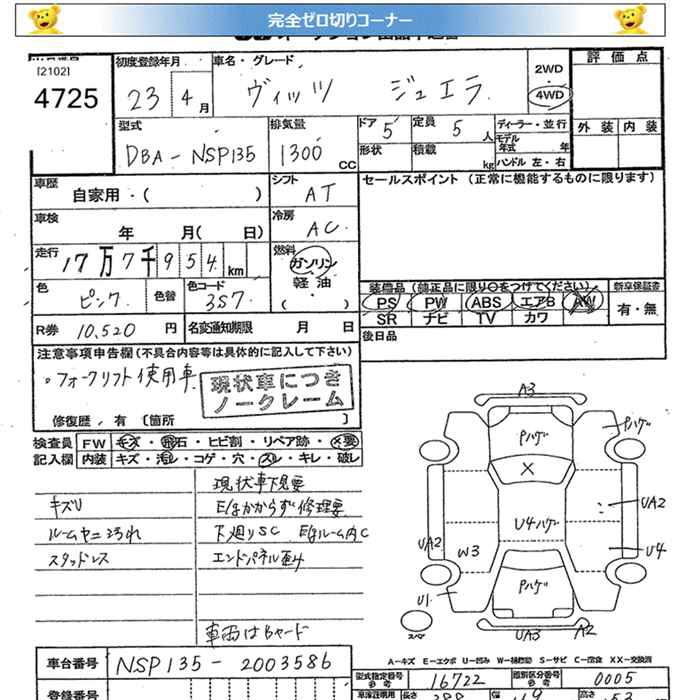 完全ゼロ切りコーナー
[2102]
4725
初度登録年月
23年4月
車名・グレード
ヴィッツ ジュエラ
2WD
・
4WD
評価点
外装 内装
型式
DBA-NSP135
排気量
1300 CC
ドア 5
形状
定員 5人
積載 kg
ディーラー・並行
モデル年式 年
ハンドル 左・右
車歴
自家用・( )
シフト AT
セールスポイント (正常に機能するものに限ります)
車検
年 月( 日)
冷房 AC
走行
17万7千954km
燃料
ガソリン
軽油
・
( )
色 ピンク
色替
色コード 3S7
装備品(純正品に限り○をつけてください)
PS PW ABS エアB AW
SR ナビ TV カワ
新車保証書
有・無
R券 10,520円
名変通知期限 月 日
後日品
注意事項申告欄(不具合内容等は具体的に記入して下さい)
。フォークリフト使用車
現状車につき
ノークレーム
修復歴, 有 〔箇所 〕
検査員 FW キズ・飛石・ヒビ割・リペア跡・×要
記入欄 内装 キズ・汚レ・コゲ・穴・スレ・キレ・破レ
現状車下見要
キズU
Eはかからず修理要
ルームヤニヨゴれ
下廻りSC EはルームムC
スタッドレス
エンドパネル歪み
車両はBヤード
A3
Pハゲ
Pハゲ
X
U4ハゲ
UA2
UA2
W3
U4
Pハゲ
U1
スペア
UA3
A2
A-キズ E-エクボ U-凹み W-補修跡 S-サビ C-腐食 XX-交換済
車台番号 NSP135-2003586
型式指定番号 参考 16722
類別区分番号 参考 0005
登録番号